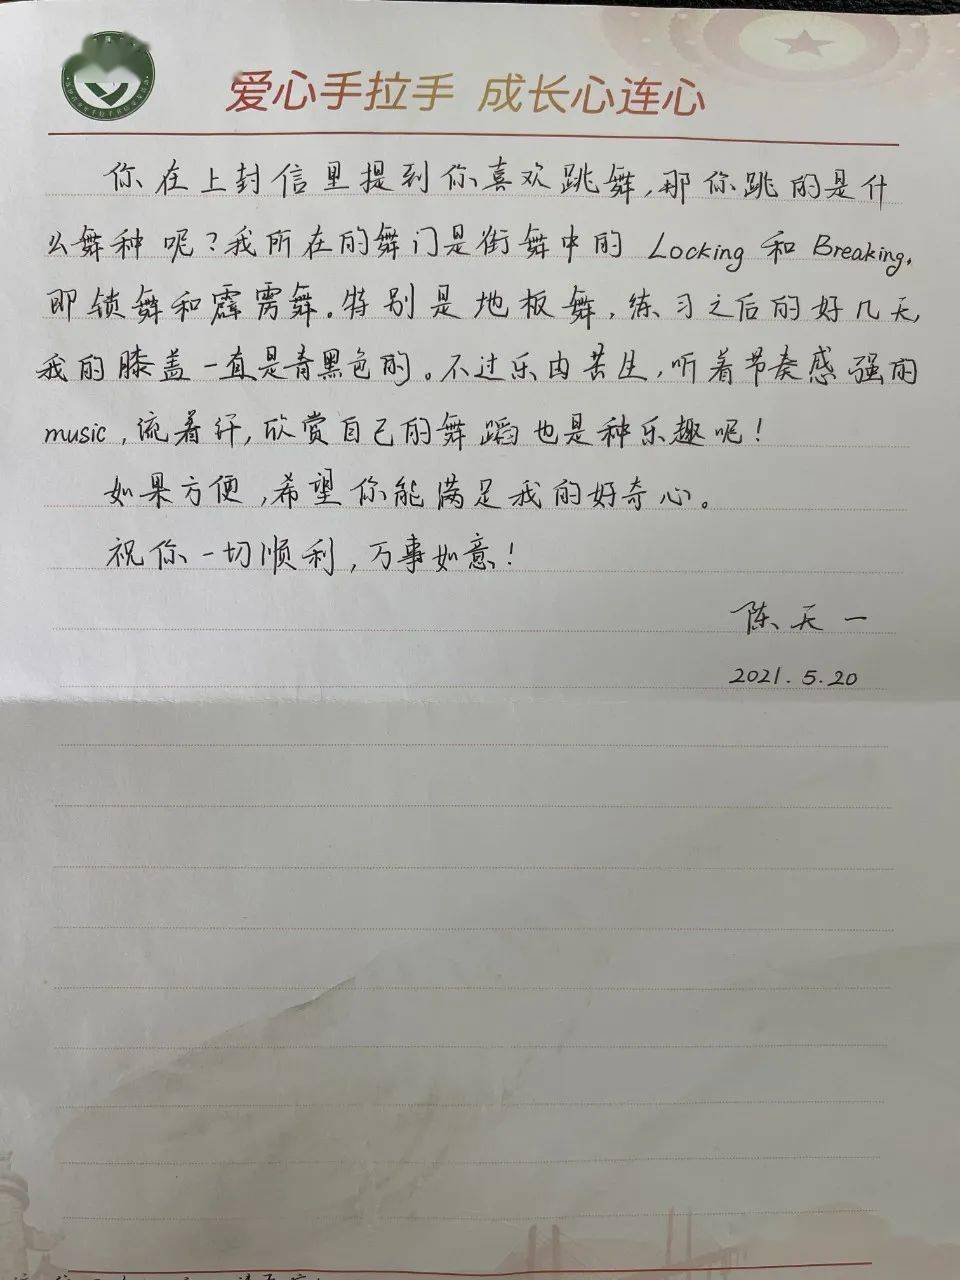 爱心手拉手 成长心连心
你在上封信里提到你喜欢跳舞，那你跳的是什
么舞种呢？我所在的舞门是街舞中的 Locking 和 Breaking，
即锁舞和霹雳舞。特别是地板舞，练习之后的好几天，
我的膝盖一直是青黑色的。不过乐由苦生，听着节奏感强的
music，流着汗，欣赏自己的舞蹈也是种乐趣呢！
如果方便，希望你能满足我的好奇心。
祝你一切顺利，万事如意！
陈天一
2021.5.20